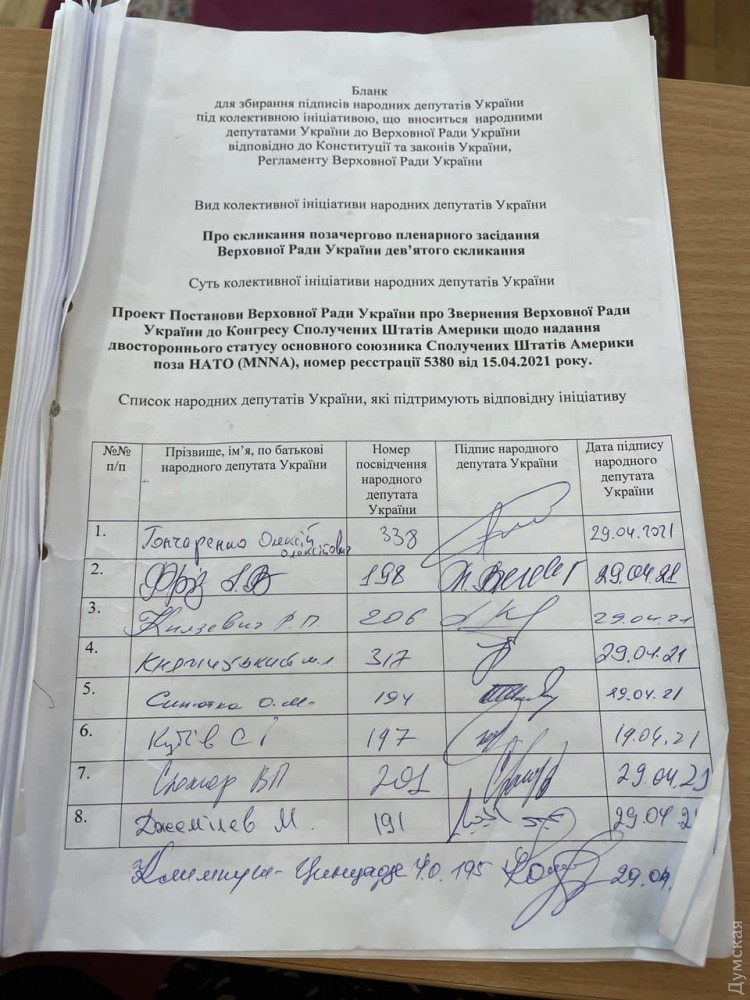 Бланк
для збирання підписів народних депутатів України
під колективною ініціативою, що вноситься народними
депутатами України до Верховної Ради України
відповідно до Конституції та законів України,
Регламенту Верховної Ради України
Вид колективної ініціативи народних депутатів України
Про скликання позачергово пленарного засідання
Верховної Ради України дев’ятого скликання
Суть колективної ініціативи народних депутатів України
Проект Постанови Верховної Ради України про Звернення Верховної Ради
України до Конгресу Сполучених Штатів Америки щодо надання
двостороннього статусу основного союзника Сполучених Штатів Америки
поза НАТО (MNNA), номер реєстрації 5380 від 15.04.2021 року.
Список народних депутатів України, які підтримують відповідну ініціативу
№№ п/п
Прізвище, ім’я, по батькові народного депутата України
Номер посвідчення народного депутата України
Підпис народного депутата України
Дата підпису народного депутата України
1. Гончаренко Олексій Олексійович 338 29.04.2021
2. Фріз І.В 198 29.04.21
3. Князевич Р.П. 206 29.04.21
4. 317 29.04.21
5. Синютка О.М. 194 29.04.21
6. Кубів С І 197 19.04.21
7. 201 29.04.21
8. Джемілев М. 191 29.04.21
Климпуш-Цинцадзе І.О. 195 29.04.
Думская